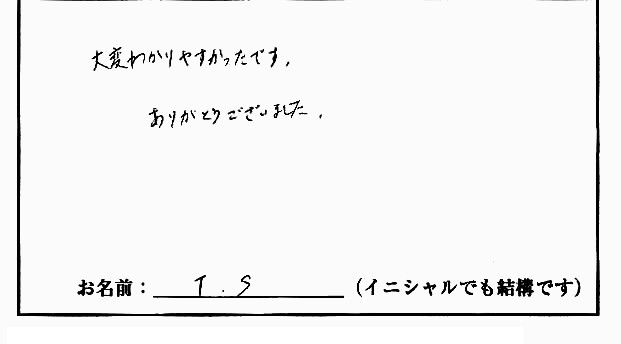 大変わかりやすかったです.
ありがとうございました.
お名前：T.S（イニシャルでも結構です）